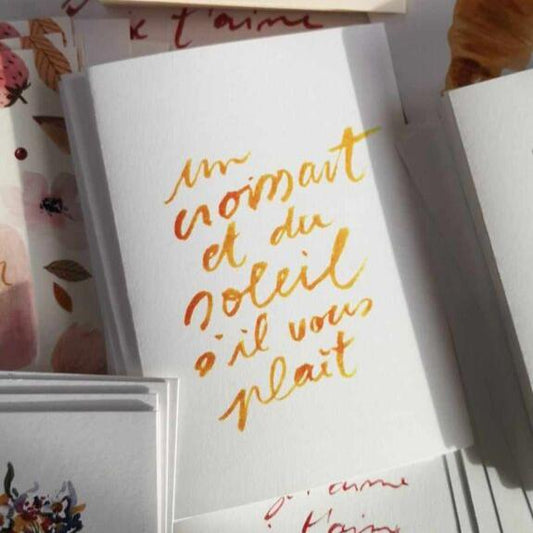 je t'aime
un
croissant
et du
soleil
s'il vous
plaît
je t'aime
je t'aime